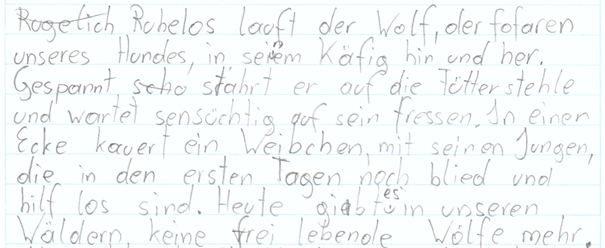 Rogelich Ruhelos lauft der Wolf, der fofaren
unseres Hundes, in seinem Käfig hin und her.
Gespannt scho stahrt er auf die Fütterstehle
und wartet sensüchtig auf sein fressen. In einer
Ecke kauert ein Weibchen, mit seinen Jungen,
die in den ersten Tagen noch blied und
hilf los sind. Heute giebt es in unseren
Wäldern, keine frei lebende Wölfe mehr.